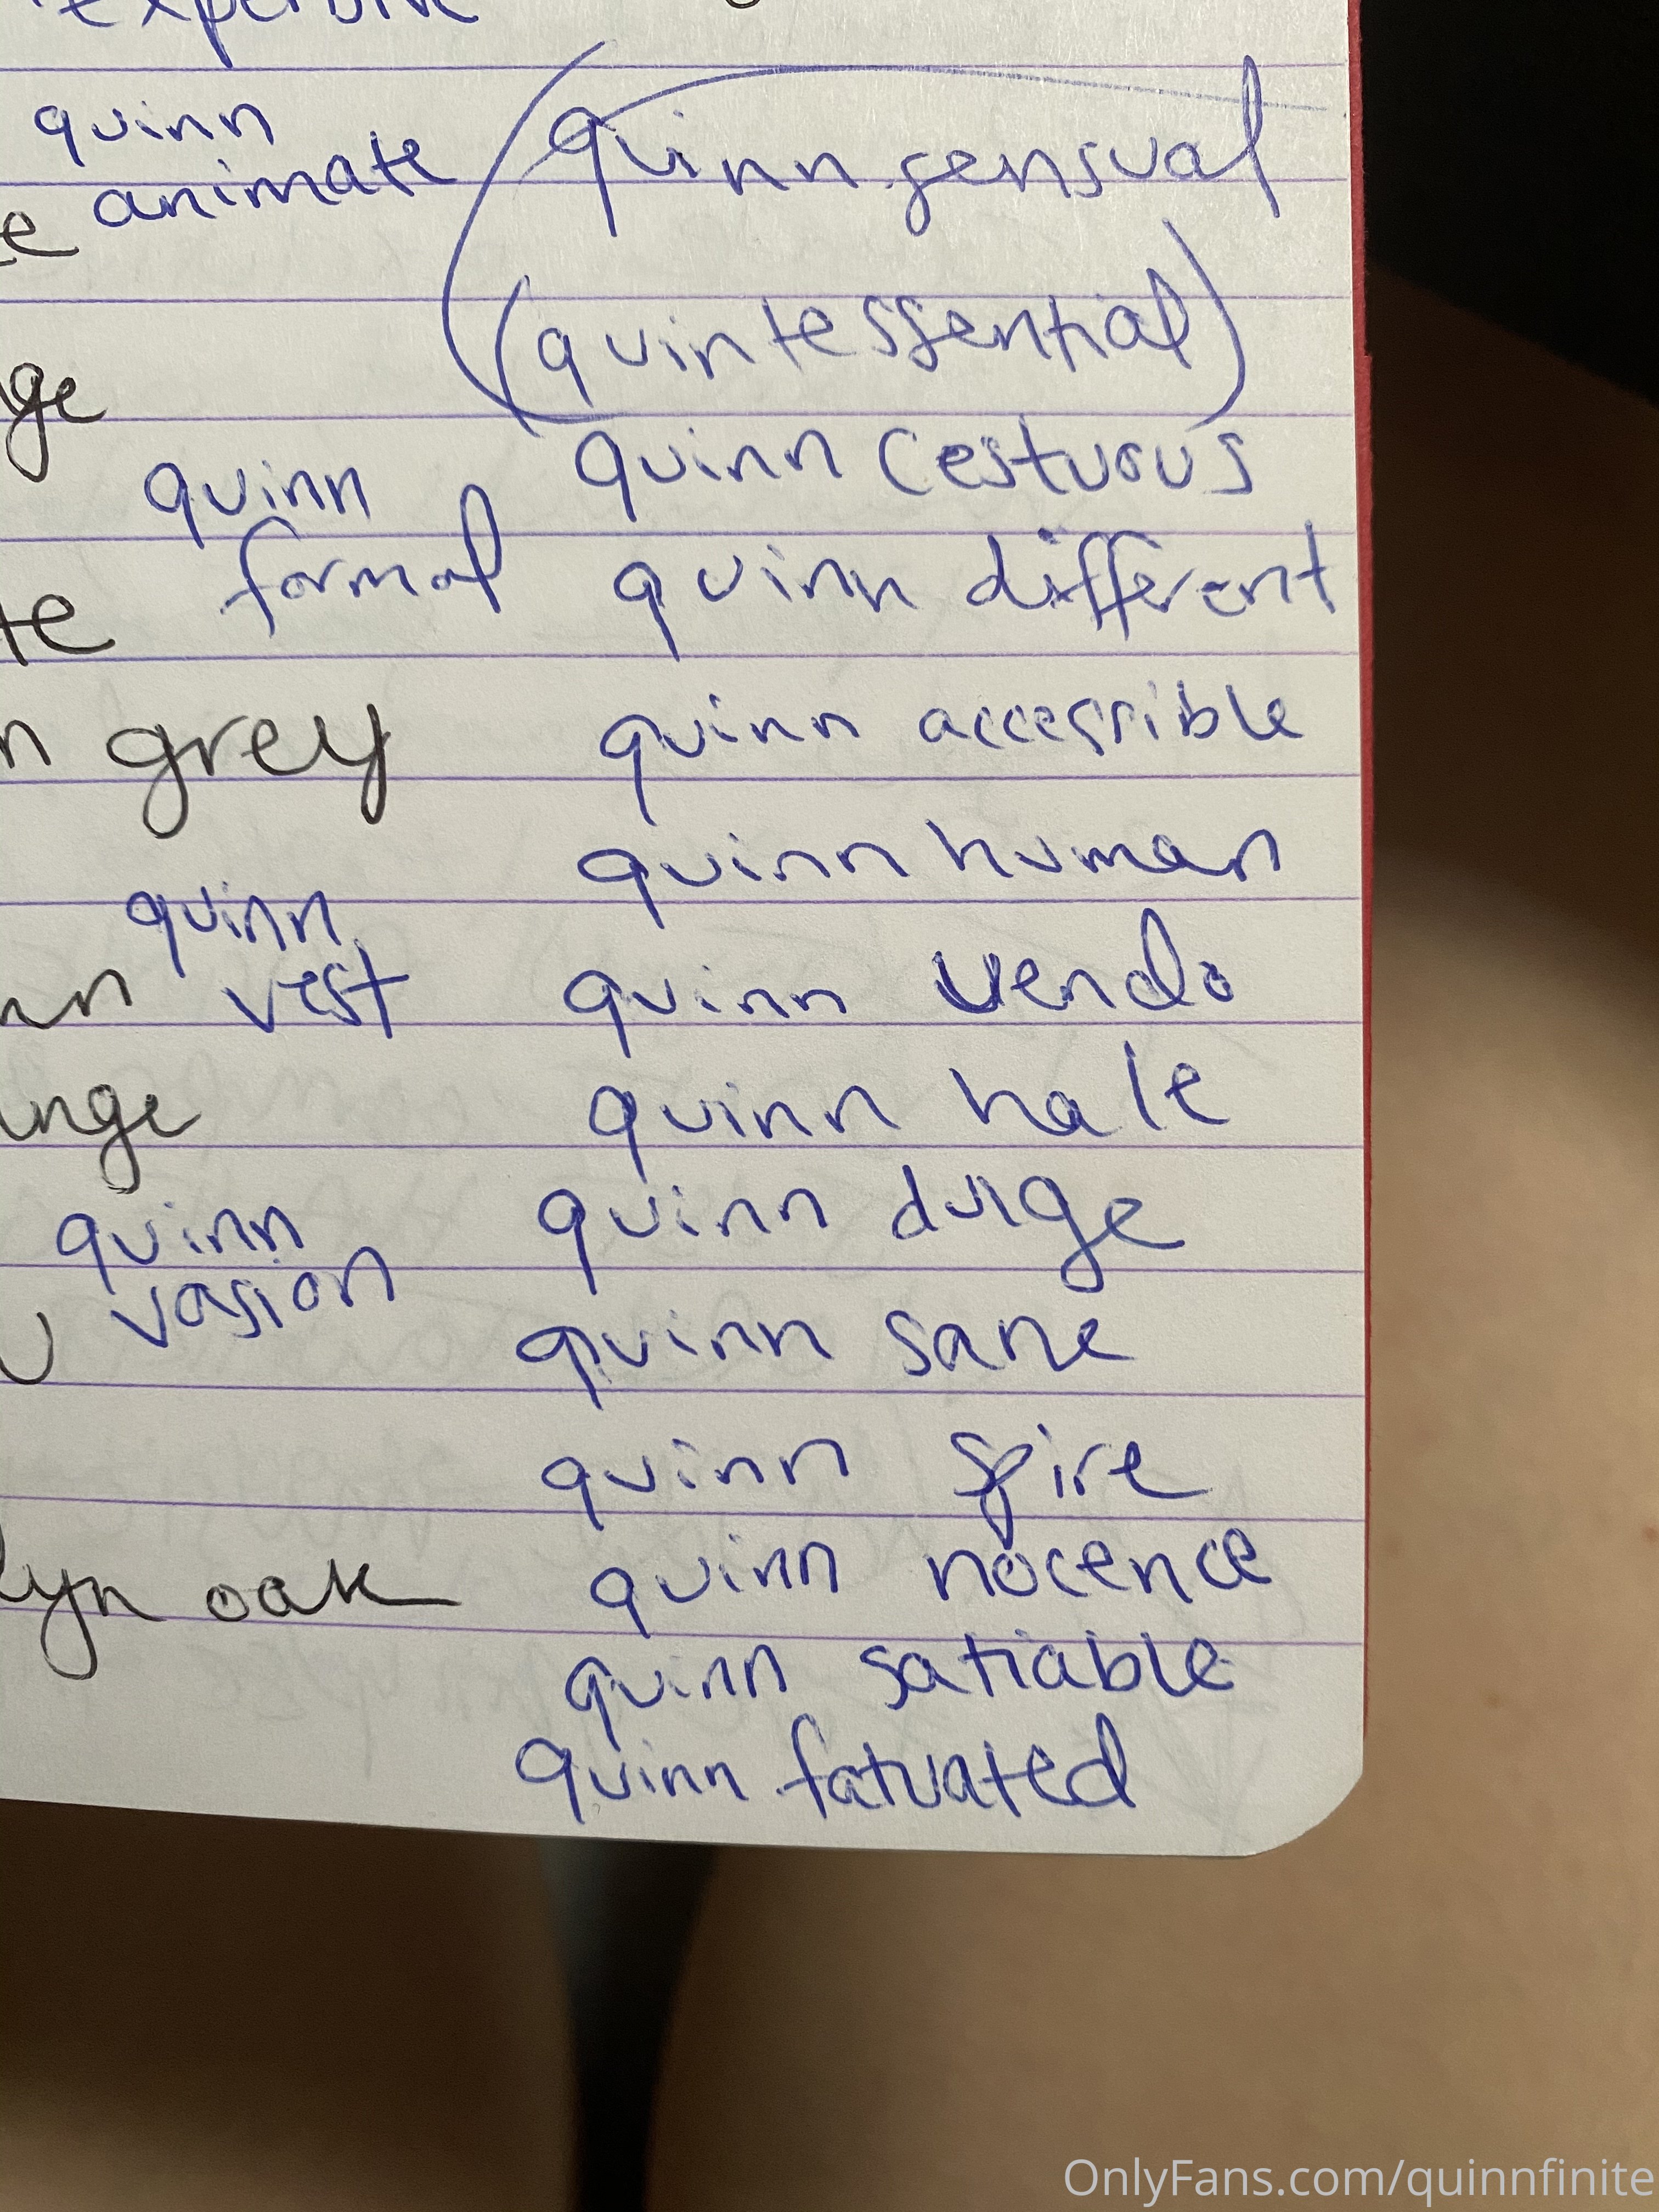 quinn
animate
quinn sensual
(quintessential)
ge
quinn
formal
quinn cestuous
quinn different
te
quinn accessible
grey
quinn human
quinn
vest
quinn uendo
quinn hale
quinn dulge
quinn
vasion
quinn sane
quinn spire
oak
quinn nocence
quinn satiable
quinn fatuated
OnlyFans.com/quinnfinite